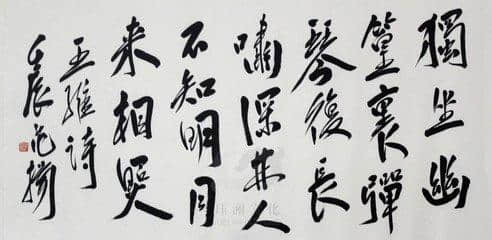 獨坐幽
篁裏彈
琴復長
嘯深林人
不知明月
来相照
王維詩
壬辰范揚